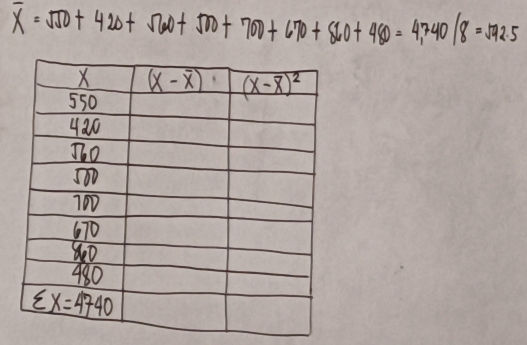 X̄ = 550 + 420 + 560 + 500 + 700 + 670 + 860 + 480 = 4,740 / 8 = 592.5
X (X - X̄) (X - X̄)²
550
420
560
500
700
670
860
480
ΣX = 4740